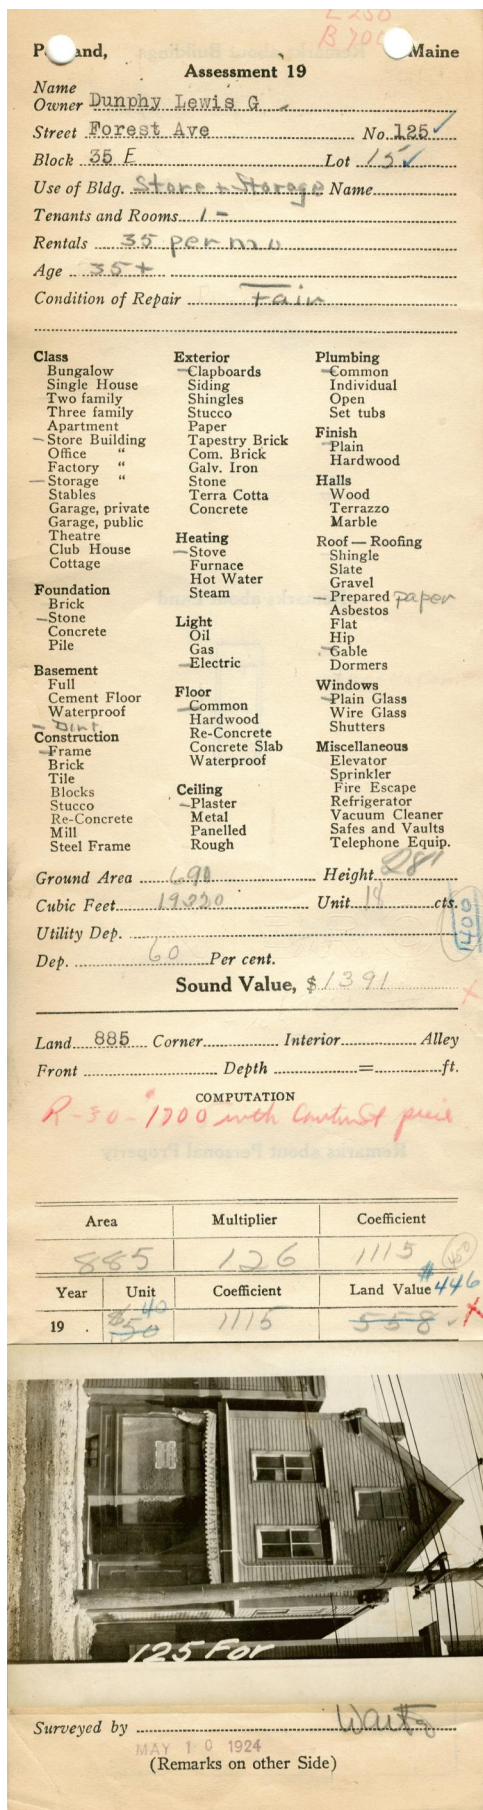 L 250
B 700
P and, Maine
Assessment 19
Name
Owner Dunphy Lewis G
Street Forest Ave No. 125 ✓
Block 35 E Lot 15 ✓
Use of Bldg. Store + Storage Name
Tenants and Rooms 1 -
Rentals 35 per mo
Age 35 +
Condition of Repair Fair
Class
Bungalow
Single House
Two family
Three family
Apartment
- Store Building
Office "
Factory "
- Storage "
Stables
Garage, private
Garage, public
Theatre
Club House
Cottage
Foundation
Brick
- Stone
Concrete
Pile
Basement
Full
Cement Floor
Waterproof
- Dirt
Construction
- Frame
Brick
Tile
Blocks
Stucco
Re-Concrete
Mill
Steel Frame
Exterior
- Clapboards
Siding
Shingles
Stucco
Paper
Tapestry Brick
Com. Brick
Galv. Iron
Stone
Terra Cotta
Concrete
Heating
- Stove
Furnace
Hot Water
Steam
Light
Oil
Gas
- Electric
Floor
- Common
Hardwood
Re-Concrete
Concrete Slab
Waterproof
Ceiling
- Plaster
Metal
Panelled
Rough
Plumbing
- Common
Individual
Open
Set tubs
Finish
- Plain
Hardwood
Halls
Wood
Terrazzo
Marble
Roof — Roofing
Shingle
Slate
Gravel
- Prepared paper
Asbestos
Flat
Hip
- Gable
Dormers
Windows
- Plain Glass
Wire Glass
Shutters
Miscellaneous
Elevator
Sprinkler
Fire Escape
Refrigerator
Vacuum Cleaner
Safes and Vaults
Telephone Equip.
Ground Area 690 Height 28'
Cubic Feet 19320 Unit 18 cts.
1400
Utility Dep.
Dep. 60 Per cent.
Sound Value, $ 1391
Land 885 Corner Interior Alley
Front Depth = ft.
COMPUTATION
R-30-1700 with
Area Multiplier Coefficient
885 126 1115 450
Year Unit Coefficient Land Value $446
19 . $50 40 1115 558
125 For
Surveyed by Watts
MAY 10 1924
(Remarks on other Side)